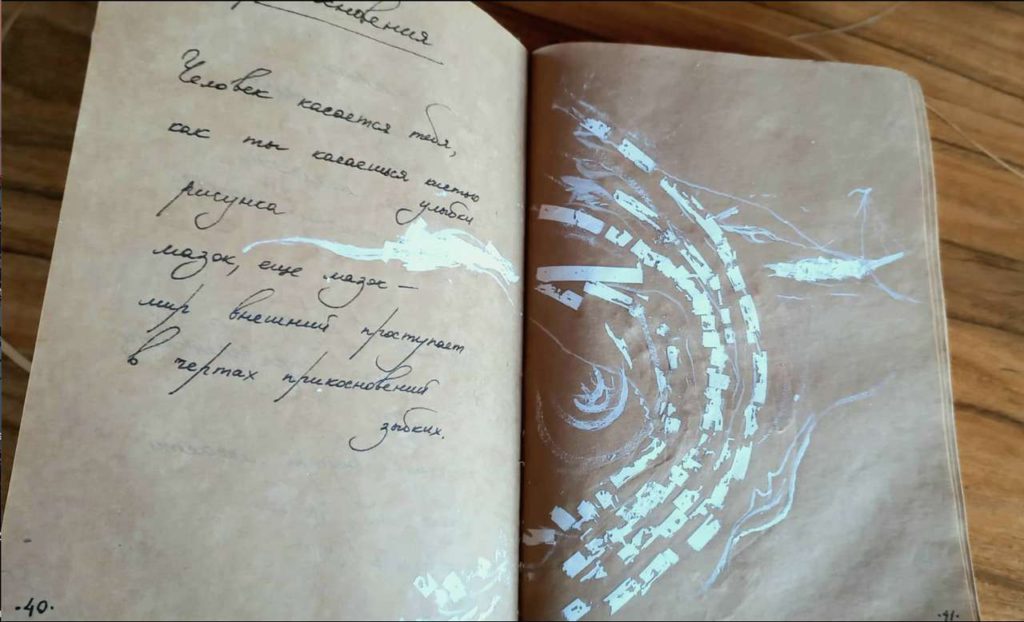 Человек касается тебя,
как ты касаешься кистью
рисунка улыбки
мазок, еще мазок —
мир внешний проступает
в чертах прикосновений
зыбких.
·40·
·41·